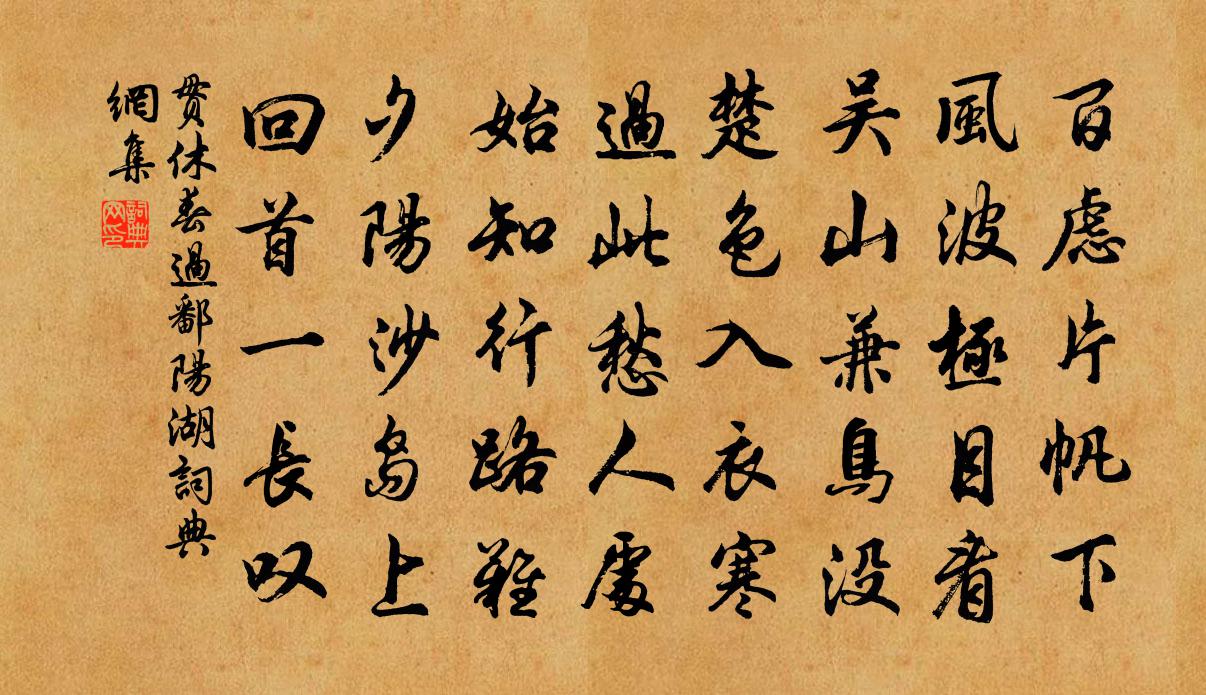 百慮片帆下
風波極目看
吴山兼鳥没
楚色入衣寒
過此愁人處
始知行路難
夕陽沙島上
回首一長叹
貫休春過鄱陽湖詞典
網集
詞典
网印